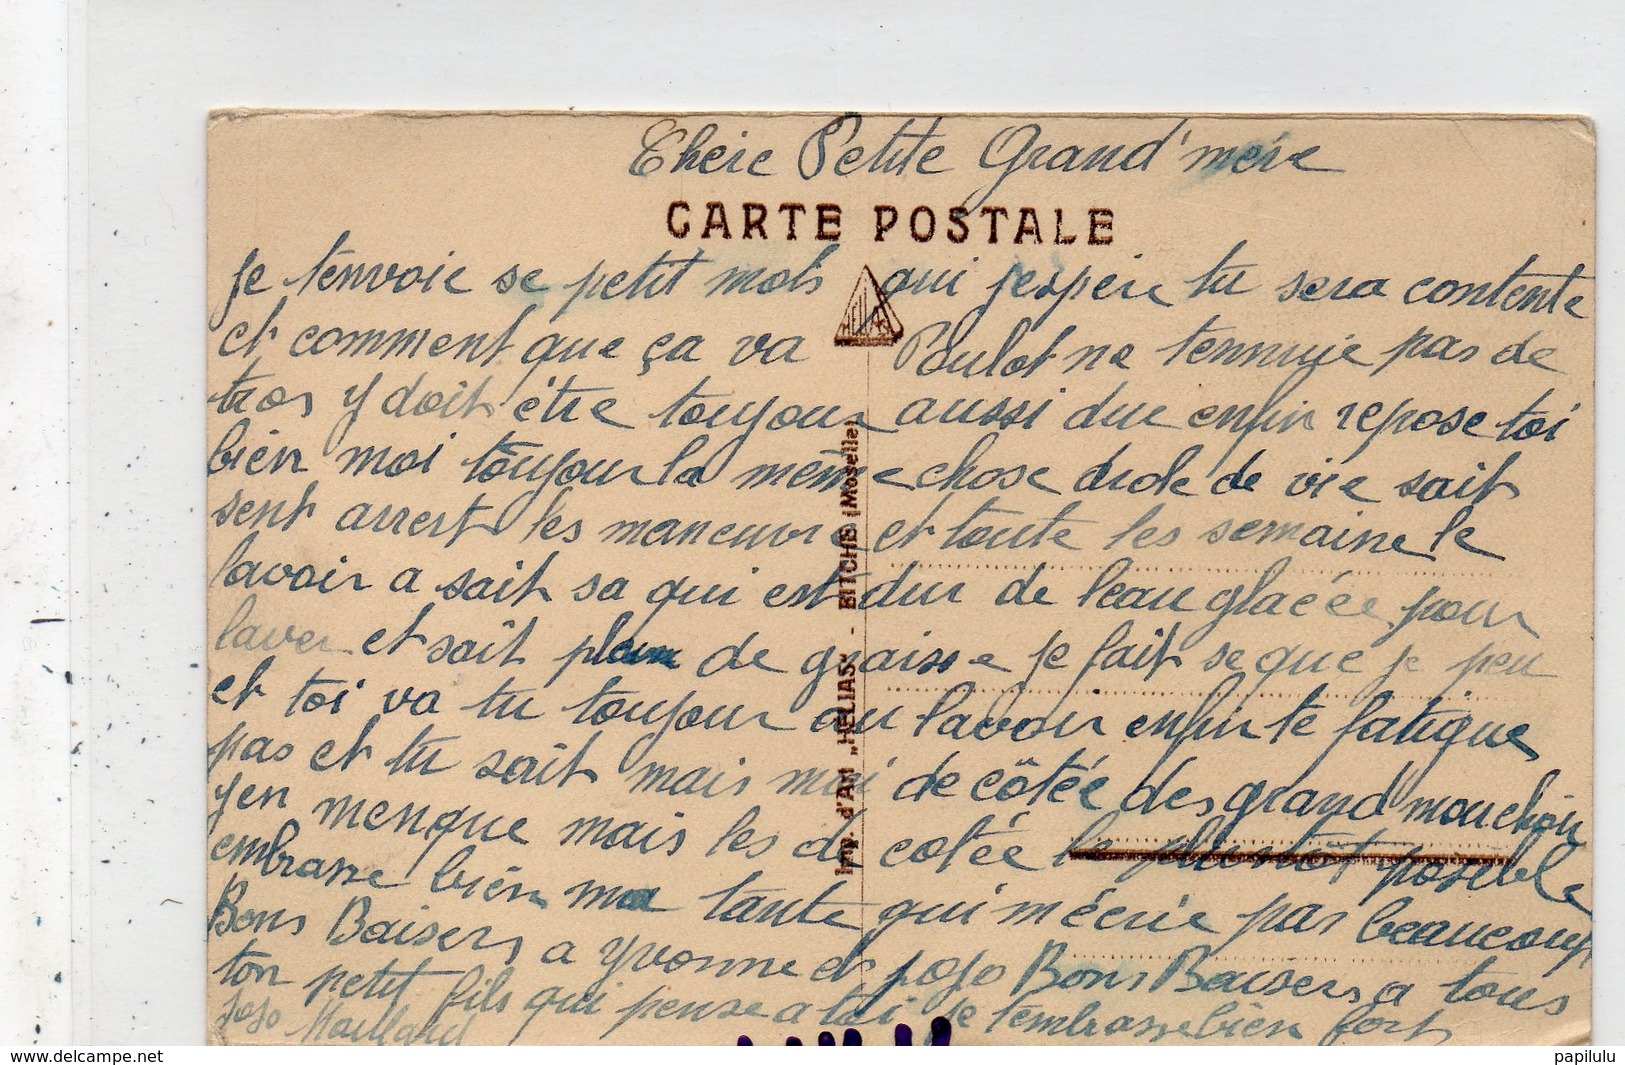 Chere Petite Grand'mère
CARTE POSTALE
HELIAS
je t'envoie se petit mots qui j'espère tu sera contente
et comment que ça va Poulot ne t'ennuie pas de
trop y doit être toujour aussi dur enfin repose toi
bien moi toujour la même chose drole de vie sait
sent arrest les maneuvre et toute les semaine le
lavoir a sait sa qui est dur de l'eau glacée pour
laver et sait plein de graisse je fait se que je peu
et toi va tu toujour au lavoir enfin te fatigue
pas et tu sait mais moi de côtée des grand mouchoir
j'en menque mais les de cotée le plutôt posible
embrasse bien ma tante qui m'écrie pas beaucoup
Bons Baisers a Yvonne et jojo Bons Baisers a tous
ton petit fils qui pense a toi je t'embrasse bien fort
Jojo Maillard
Imp. d'Art „HELIAS" - BITCHE (Moselle)
www.delcampe.net
papilulu